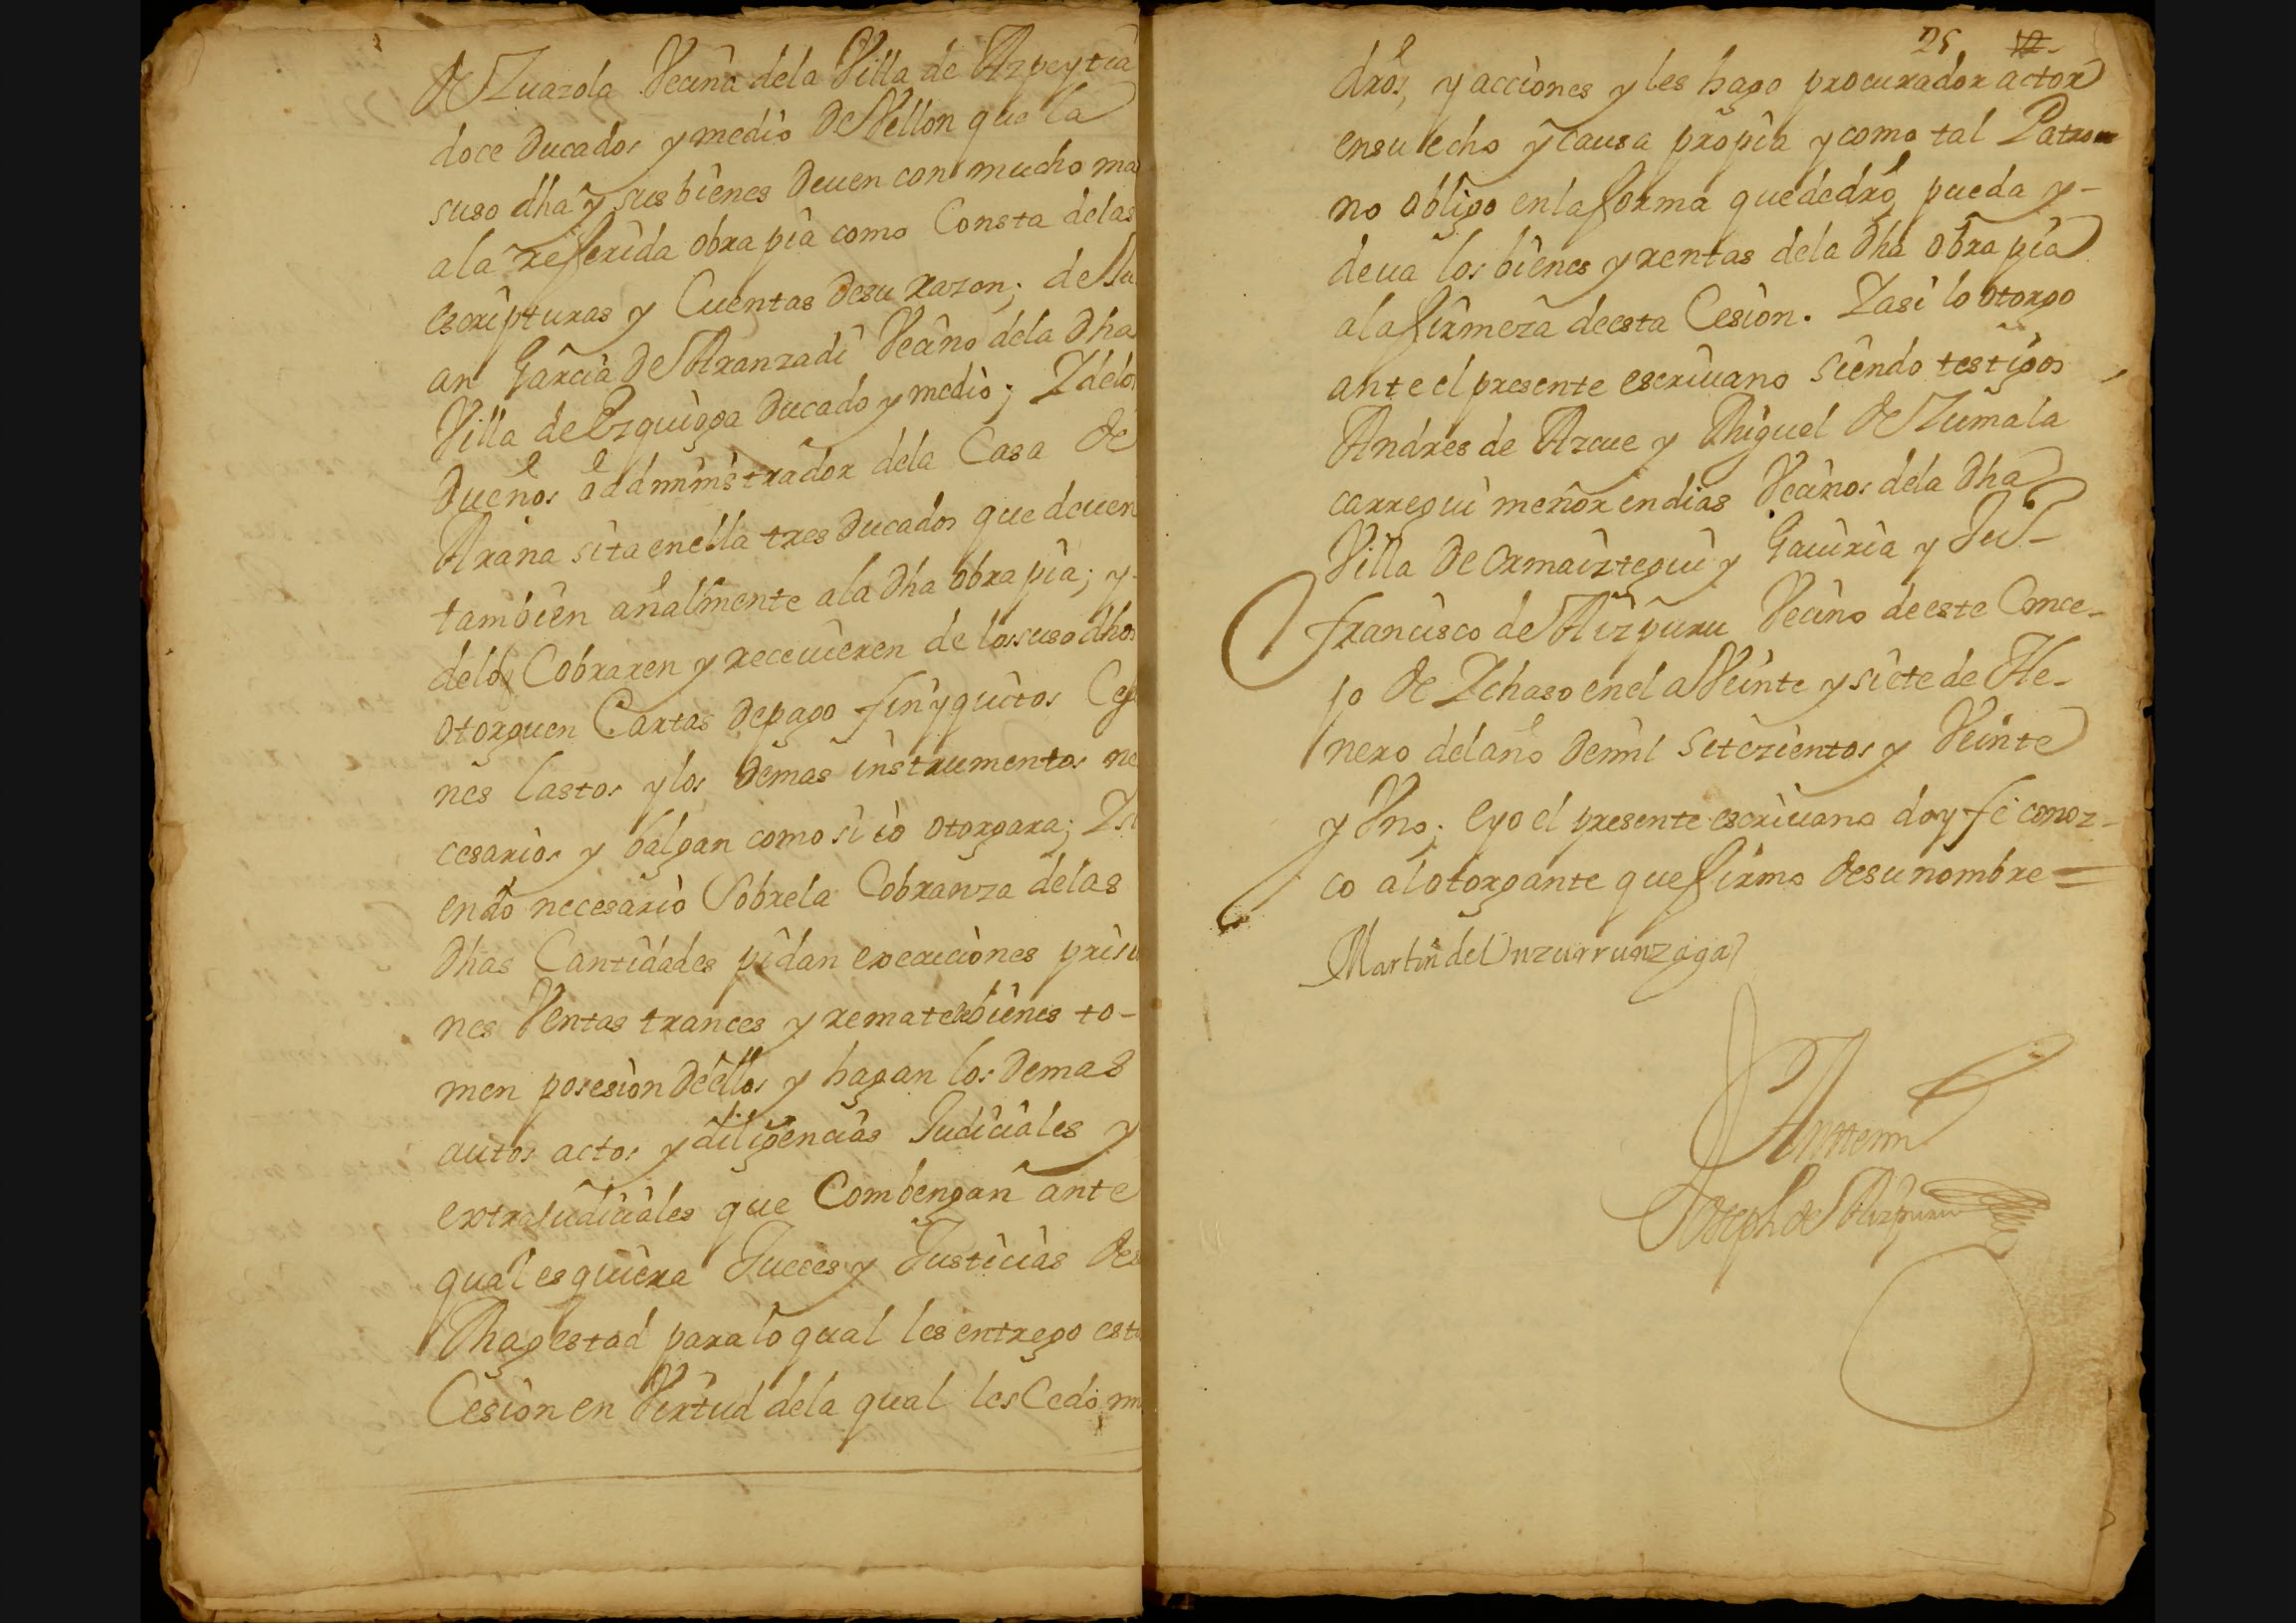 de Zuazola Vecina dela Villa de Azpeytia
doce Ducados y medio De Vellon que la
suso dha y sus bienes Deuen con mucho ma
ala referida obra pia como Consta delas
escripturas y Cuentas Desu Razon; de Ju
an Garcia De Aranzadi Vecino dela Dha
Villa de Ezquioga Ducado y medio; Y delos
Dueños o administrador dela Casa de
Arana sita enella tres Ducados que deuen
tambien añalmente ala Dha obra pia; y
delo q Cobraren y receuieren de los suso dhos
otorguen Cartas Depago finyquitos Cesi
nes lastos y los Demas instrumentos ne
cesarios y balgan como si io otorgara; Y si
endo necesario Sobrela Cobranza delas
Dhas Cantidades pidan execuciones prisio
nes Ventas trances y remate de bienes to-
men posesion Deellos y hagan los Demas
autos actos y diligencias Judiciales y
extrajudiciales que Combengan ante
qualesquiera Jueces y Justicias De su
Magestad paralo qual les entrego esta
Cesion en Virtud dela qual les Cedo mis
25 12
dros, y acciones y les hago procurador actor
ensu fecho y causa propia y como tal Patron
no obligo enla forma que de dro pueda y-
deua los bienes y rentas dela Dha obra pia
ala firmeza deesta Cesion. Y asi lo otorgo
ante el presente escriuano siendo testigos
Andres de Azcue y Miguel de Zumala
carregui menor en dias Vecinos dela Dha
Villa De Ormaiztegui y Gauiria y Ju
Francisco de Aizpuru Vecino deeste Conce-
jo de Ychaso en el a Veinte y siete de He-
nero del año Demil setezientos y Veinte
y Vno; e yo el presente escriuano doy fe conoz-
co al otorgante que firmo desu nombre =
Martin de Unzurrunzaga
Antemi
Joseph de Aizpuru